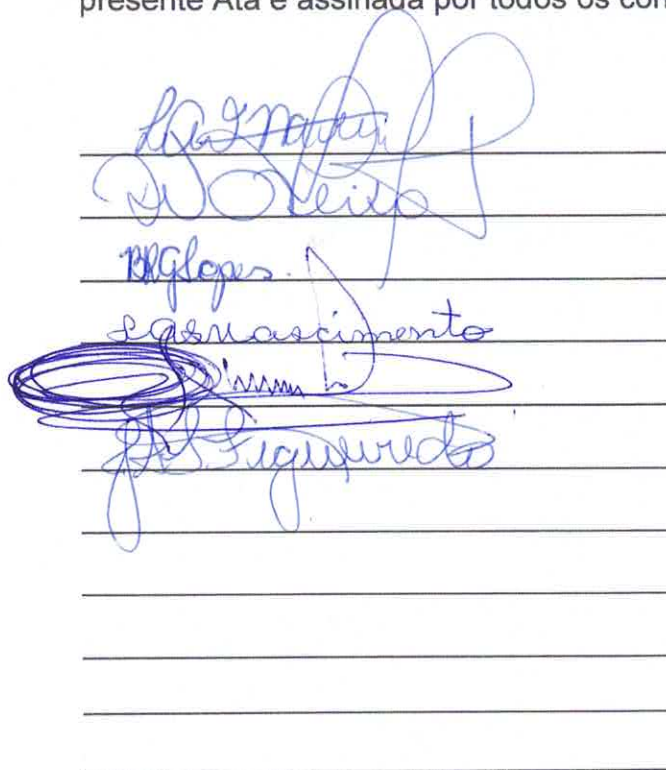 presente Ata é assinada por todos os con
DV Oliveira
BRGLopes.
sasnascimento
JAS Figueiredo